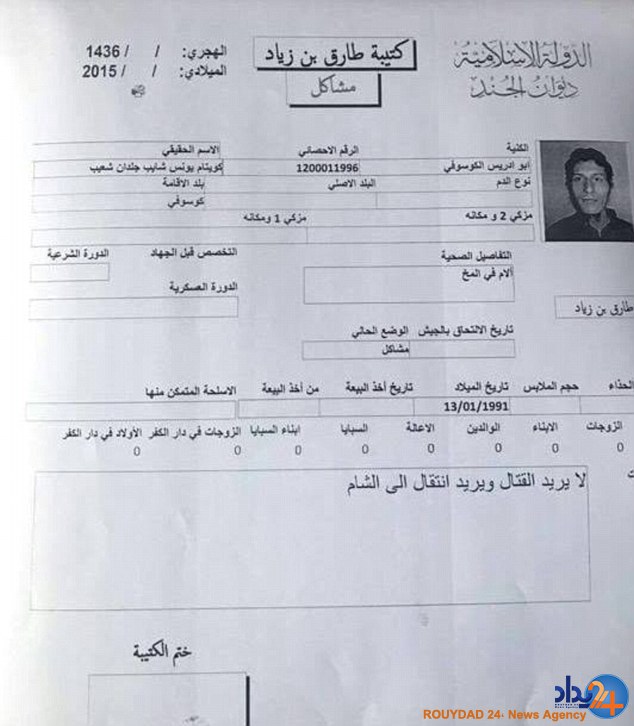 الدولة الإسلامية
ديوان الجند
كتيبة طارق بن زياد
مشاكل
الهجري: / / 1436
الميلادي: / / 2015
الكنية الرقم الاحصائي الاسم الحقيقي
ابو ادريس الكوسوفي 1200011996 كويتام يونس شايب جلدان شعيب
نوع الدم البلد الاصلي بلد الاقامة
كوسوفي
مزكي 2 و مكانه مزكي 1 ومكانه
التفاصيل الصحية التخصص قبل الجهاد الدورة الشرعية
الام في المخ
الدورة العسكرية
طارق بن زياد
تاريخ الالتحاق بالجيش الوضع الحالي
مشاكل
الحذاء حجم الملابس تاريخ الميلاد تاريخ أخذ البيعة من أخذ البيعة الاسلحة المتمكن منها
13/01/1991
الزوجات الابناء الوالدين الاعالة السبايا ابناء السبايا الزوجات في دار الكفر الأولاد في دار الكفر
0 0 0 0 0 0 0 0
لا يريد القتال ويريد انتقال الى الشام
ختم الكتيبة
ROUYDAD 24- News Agency